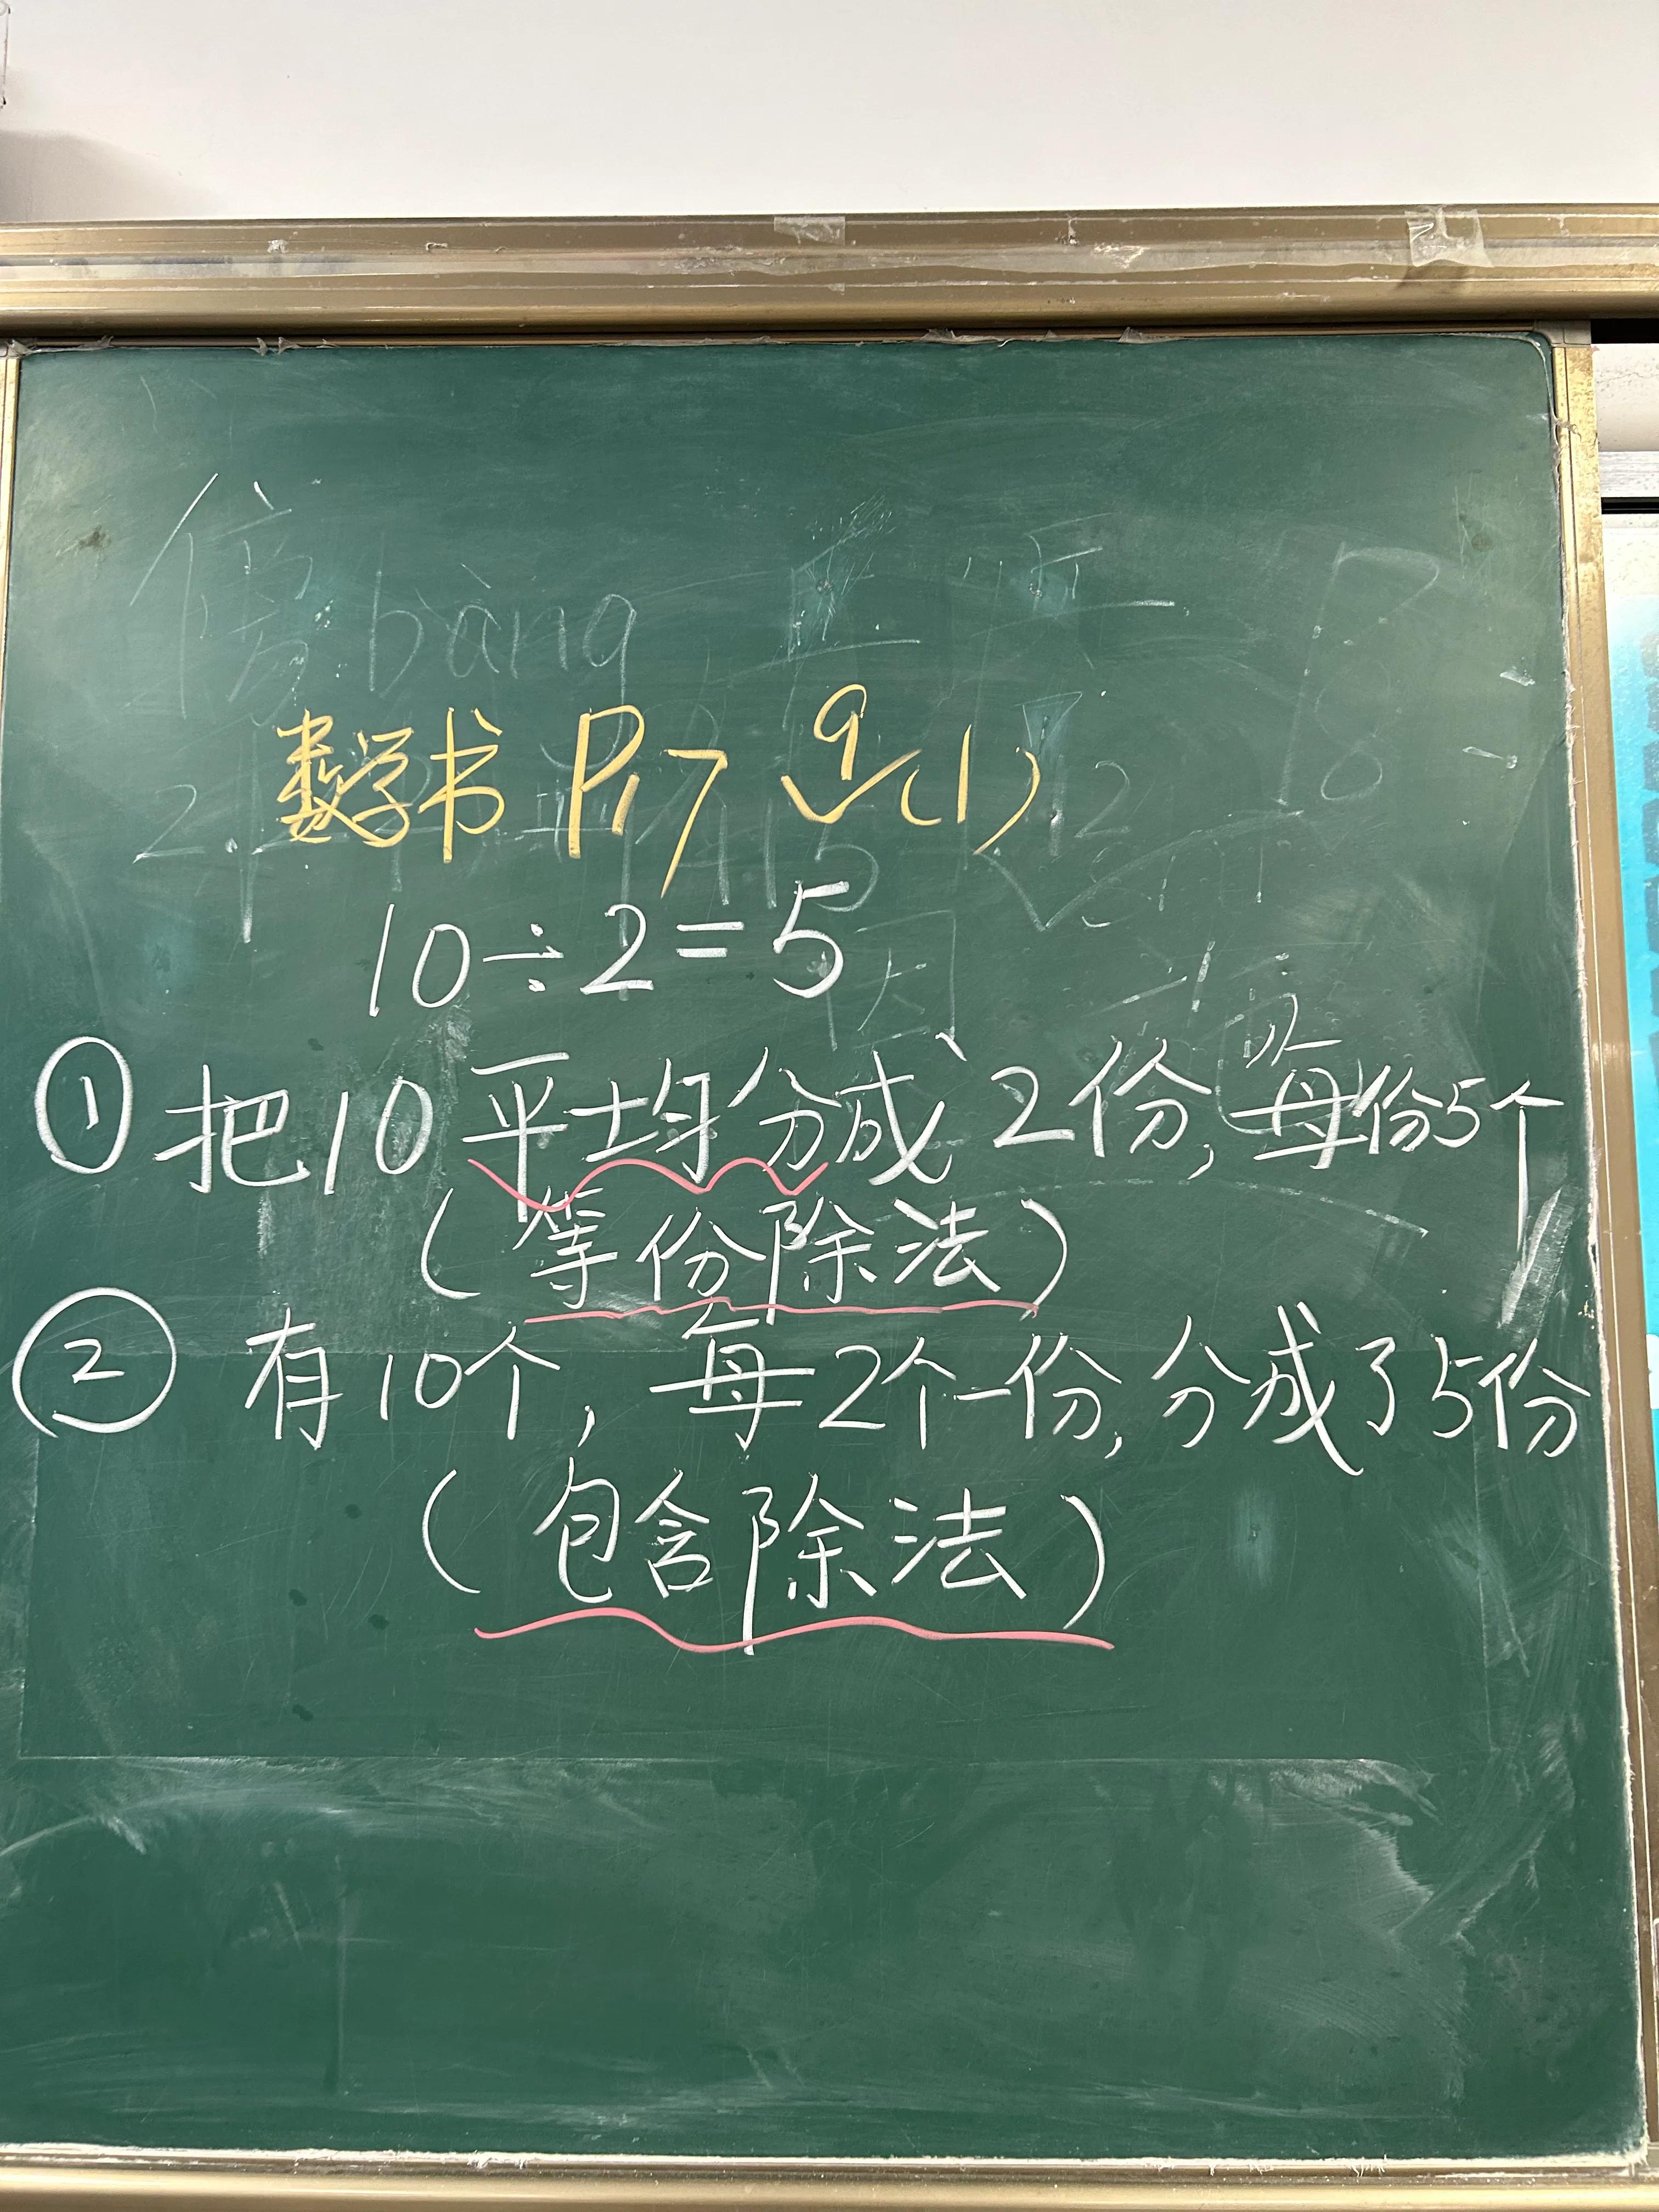 傍bàng
数学书 P17 9(1)
10÷2=5
① 把10平均分成2份,每份5个
(等份除法)
② 有10个,每2个一份,分成了5份
(包含除法)